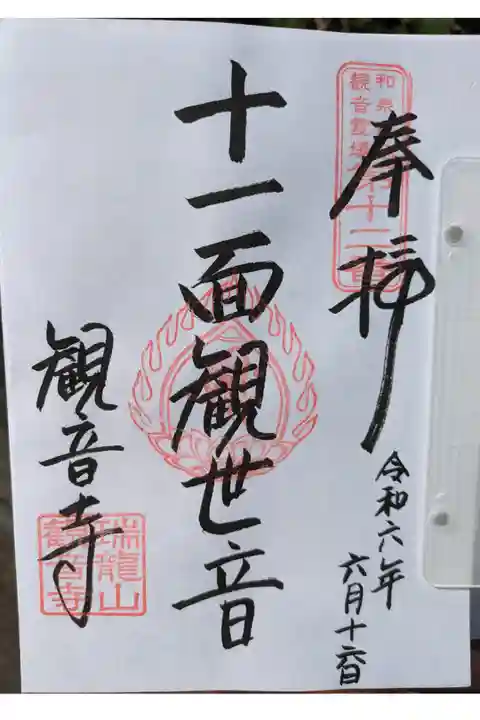 奉拝
和泉
観音霊場
第十二番
令和六年
六月十六日
十一面観世音
観音寺
瑞龍山
観音寺